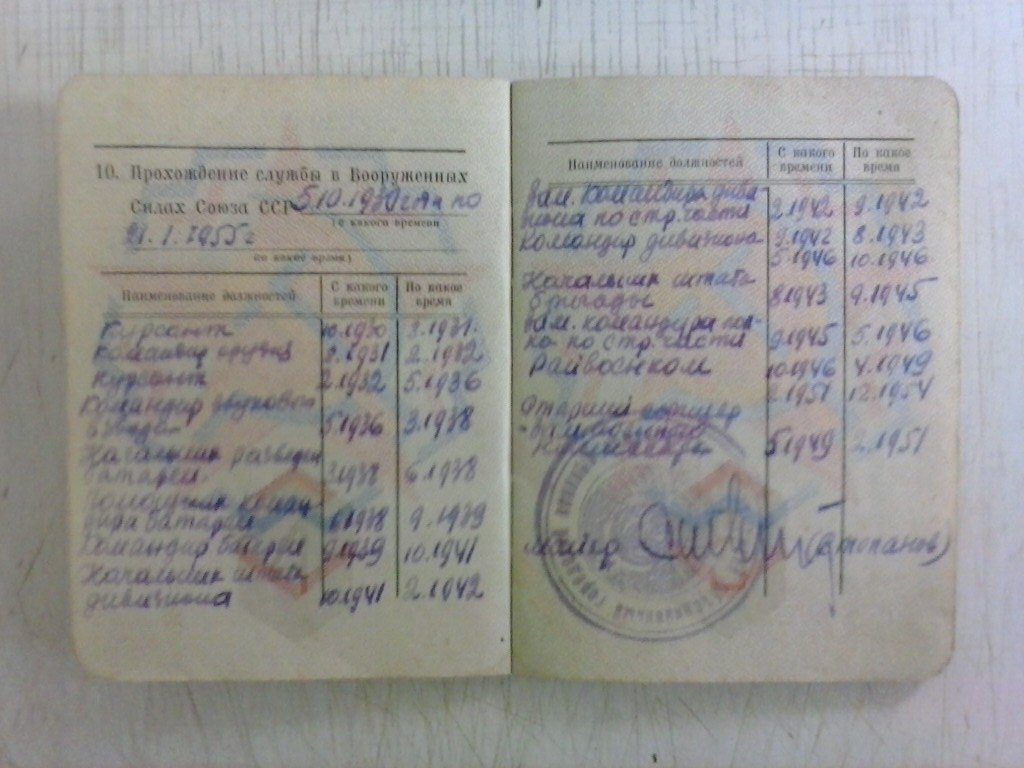 10. Прохождение службы в Вооруженных
Силах Союза ССР 5.10.1930 г. по
(с какого времени)
21.1.1955 г
(по какое время)
Наименование должностей С какого времени По какое время
Курсант 10.1930 3.1931
Командир орудия 3.1931 2.1932
Курсант 2.1932 5.1936
Командир звукового
взвода 5.1936 3.1938
Начальник разведки
батареи 3.1938 6.1938
Помощник коман-
дира батареи 6.1938 9.1939
Командир батареи 9.1939 10.1941
Начальник штаба
дивизиона 10.1941 2.1942
Наименование должностей С какого времени По какое время
Зам. Командира диви-
зиона по стр. части 2.1942 9.1942
Командир дивизиона 9.1942 8.1943
5.1946 10.1946
Начальник штаба
бригады 8.1943 9.1945
Зам. командира пол-
ка по стр. части 9.1945 5.1946
Райвоенком 10.1946 4.1949
2.1951 12.1954
Старший офицер
5.1949 2.1951
майор (Степанов)